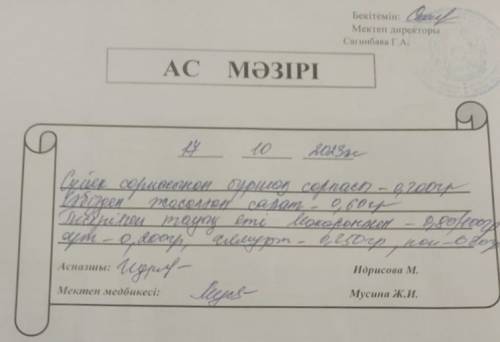 Бекітемін:
Мектеп директоры
Сагинбаева Г.А.
АС МӘЗІРІ
17 10 2023ж
Сүйек сорпасынан бұршақ сорпасы - 0,200гр
жасалған салат - 0,60гр
тауық еті макаронмен - 0,80/100гр
- 0,200гр, - 0,250гр, нан - 0,80гр
Аспазшы: Идрисова М.
Мектеп медбикесі: Мусина Ж.И.